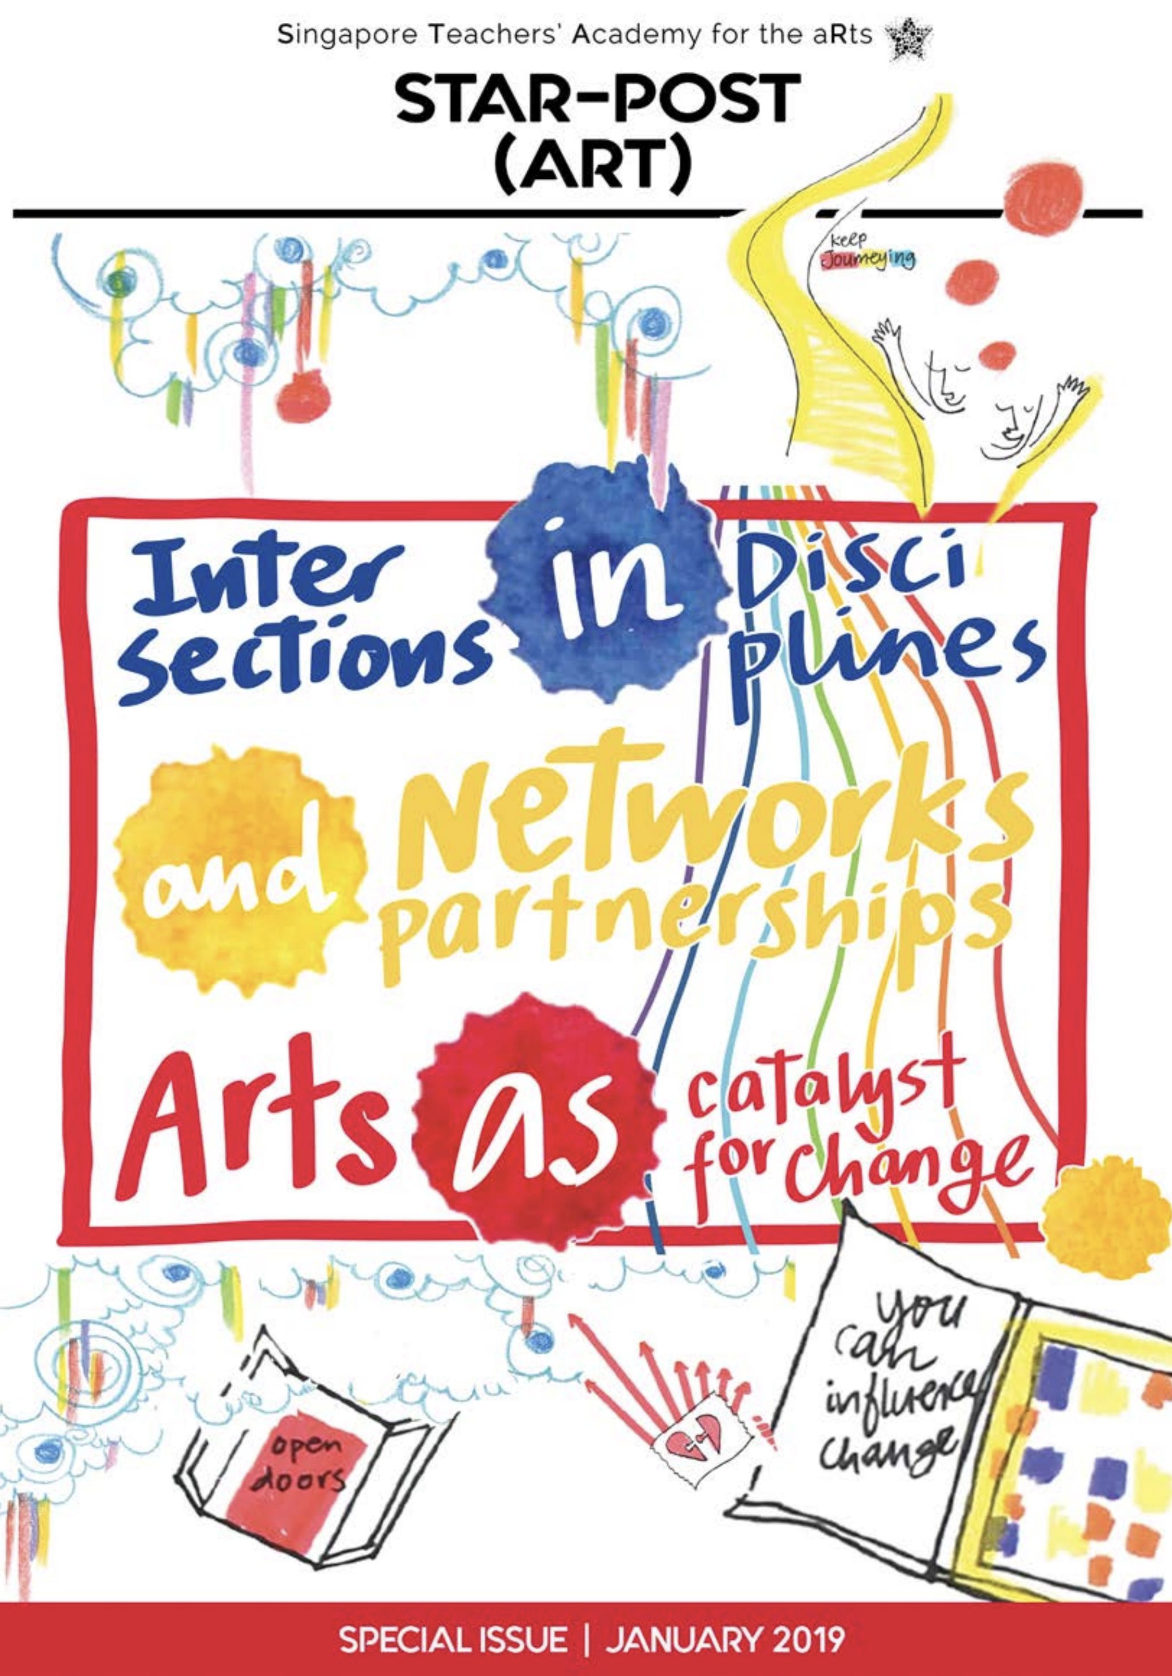 Singapore Teachers' Academy for the aRts
STAR-POST
(ART)
keep
Journeying
Inter
sections
in
Disci
plines
and
Networks
partnerships
Arts
as
catalyst
for change
open
doors
you
can
influence
change
SPECIAL ISSUE | JANUARY 2019